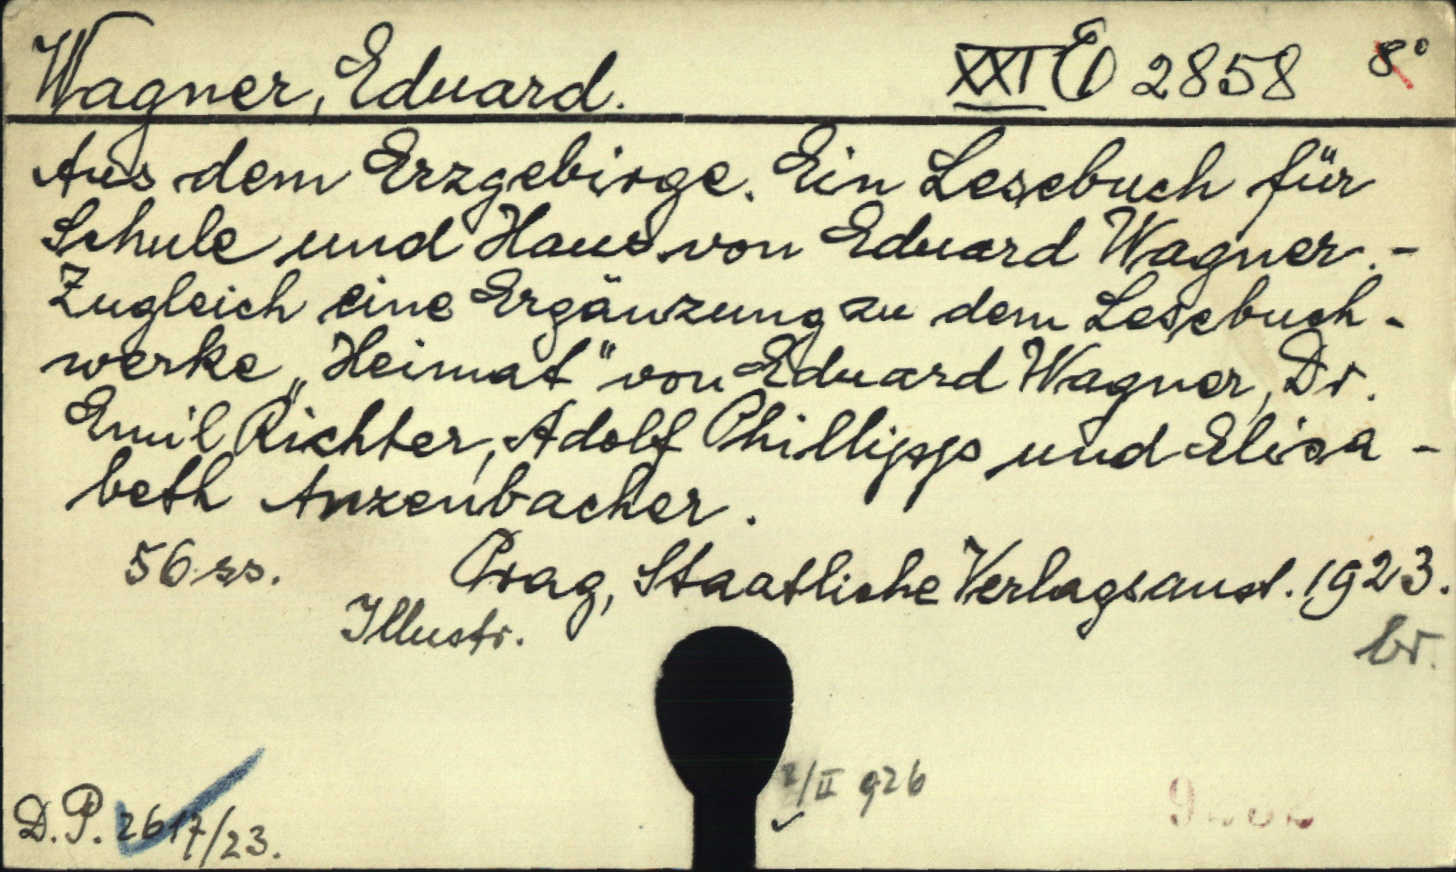 Wagner, Eduard. XXI E 2858 8°
Aus dem Erzgebirge. Ein Lesebuch für
Schule und Haus von Eduard Wagner. -
Zugleich eine Ergänzung zu dem Lesebuch-
werke „Heimat" von Eduard Wagner, Dr.
Emil Richter, Adolf Phillipps und Elisa-
beth Anzenbacher.
56 ss. Prag, Staatliche Verlagsanst. 1923.
Illustr.
br.
/II 926
D.P. 2617/23.